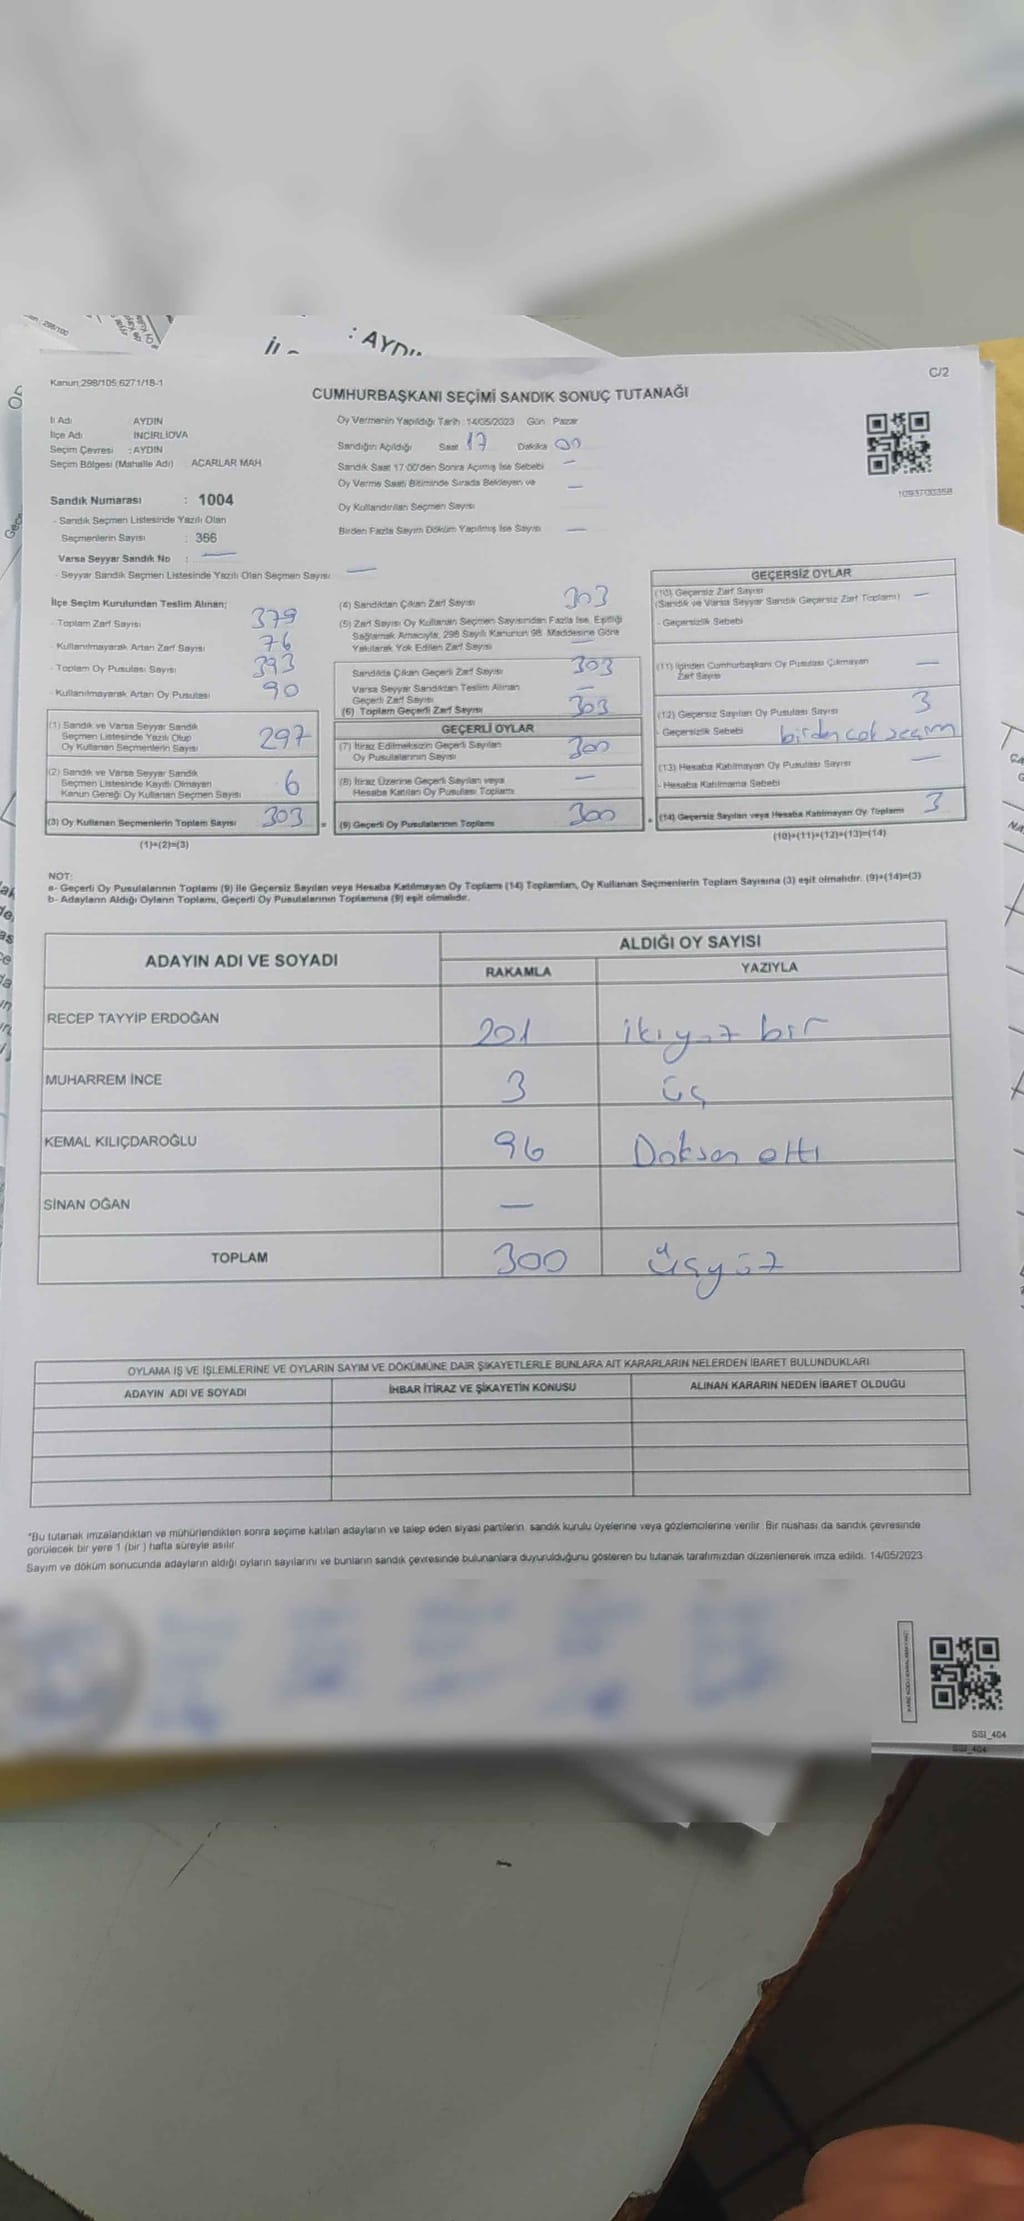 : AYDIN
Kanun:298/105;6271/18-1
C/2
CUMHURBAŞKANI SEÇİMİ SANDIK SONUÇ TUTANAĞI
İl Adı AYDIN
İlçe Adı İNCİRLİOVA
Seçim Çevresi : AYDIN
Seçim Bölgesi (Mahalle Adı) ACARLAR MAH
Sandık Numarası : 1004
- Sandık Seçmen Listesinde Yazılı Olan
Seçmenlerin Sayısı : 366
Varsa Seyyar Sandık No : —
- Seyyar Sandık Seçmen Listesinde Yazılı Olan Seçmen Sayısı —
Oy Vermenin Yapıldığı Tarih : 14/05/2023 Gün : Pazar
Sandığın Açıldığı Saat 17 Dakika 00
Sandık Saat 17:00'den Sonra Açılmış İse Sebebi —
Oy Verme Saati Bitiminde Sırada Bekleyen ve —
Oy Kullandırılan Seçmen Sayısı
Birden Fazla Sayım Döküm Yapılmış İse Sayısı —
1093700358
İlçe Seçim Kurulundan Teslim Alınan;
- Toplam Zarf Sayısı 379
- Kullanılmayarak Artan Zarf Sayısı 76
- Toplam Oy Pusulası Sayısı 393
- Kullanılmayarak Artan Oy Pusulası 90
(1) Sandık ve Varsa Seyyar Sandık
Seçmen Listesinde Yazılı Olup
Oy Kullanan Seçmenlerin Sayısı 297
(2) Sandık ve Varsa Seyyar Sandık
Seçmen Listesinde Kayıtlı Olmayan
Kanun Gereği Oy Kullanan Seçmen Sayısı 6
(3) Oy Kullanan Seçmenlerin Toplam Sayısı 303 =
(1)+(2)=(3)
(4) Sandıktan Çıkan Zarf Sayısı 303
(5) Zarf Sayısı Oy Kullanan Seçmen Sayısından Fazla İse, Eşitliği
Sağlamak Amacıyla, 298 Sayılı Kanunun 98. Maddesine Göre
Yakılarak Yok Edilen Zarf Sayısı —
Sandıkta Çıkan Geçerli Zarf Sayısı 303
Varsa Seyyar Sandıktan Teslim Alınan
Geçerli Zarf Sayısı —
(6) Toplam Geçerli Zarf Sayısı 303
GEÇERLİ OYLAR
(7) İtiraz Edilmeksizin Geçerli Sayılan
Oy Pusulası Sayısı 300
(8) İtiraz Üzerine Geçerli Sayılan veya
Hesaba Katılan Oy Pusulası Toplamı —
(9) Geçerli Oy Pusulalarının Toplamı 300 +
GEÇERSİZ OYLAR
(10) Geçersiz Zarf Sayısı
(Sandık ve Varsa Seyyar Sandık Geçersiz Zarf Toplamı) —
- Geçersizlik Sebebi
(11) İçinden Cumhurbaşkanı Oy Pusulası Çıkmayan
Zarf Sayısı —
(12) Geçersiz Sayılan Oy Pusulası Sayısı 3
- Geçersizlik Sebebi birden çok seçim
(13) Hesaba Katılmayan Oy Pusulası Sayısı —
- Hesaba Katılmama Sebebi
(14) Geçersiz Sayılan veya Hesaba Katılmayan Oy Toplamı 3
(10)+(11)+(12)+(13)=(14)
NOT:
a- Geçerli Oy Pusulalarının Toplamı (9) ile Geçersiz Sayılan veya Hesaba Katılmayan Oy Toplamı (14) Toplamları, Oy Kullanan Seçmenlerin Toplam Sayısına (3) eşit olmalıdır. (9)+(14)=(3)
b- Adayların Aldığı Oyların Toplamı, Geçerli Oy Pusulalarının Toplamına (9) eşit olmalıdır.
ADAYIN ADI VE SOYADI ALDIĞI OY SAYISI
RAKAMLA YAZIYLA
RECEP TAYYİP ERDOĞAN 201 ikiyüz bir
MUHARREM İNCE 3 üç
KEMAL KILIÇDAROĞLU 96 Doksan altı
SİNAN OĞAN —
TOPLAM 300 Üçyüz
OYLAMA İŞ VE İŞLEMLERİNE VE OYLARIN SAYIM VE DÖKÜMÜNE DAİR ŞİKAYETLERLE BUNLARA AİT KARARLARIN NELERDEN İBARET BULUNDUKLARI
ADAYIN ADI VE SOYADI İHBAR İTİRAZ VE ŞİKAYETİN KONUSU ALINAN KARARIN NEDEN İBARET OLDUĞU
*Bu tutanak imzalandıktan ve mühürlendikten sonra seçime katılan adayların ve talep eden siyasi partilerin sandık kurulu üyelerine veya gözlemcilerine verilir. Bir nüshası da sandık çevresinde
görülecek bir yere 1 (bir) hafta süreyle asılır.
Sayım ve döküm sonucunda adayların aldığı oyların sayılarını ve bunların sandık çevresinde bulunanlara duyurulduğunu gösteren bu tutanak tarafımızdan düzenlenerek imza edildi. 14/05/2023
SSI_404